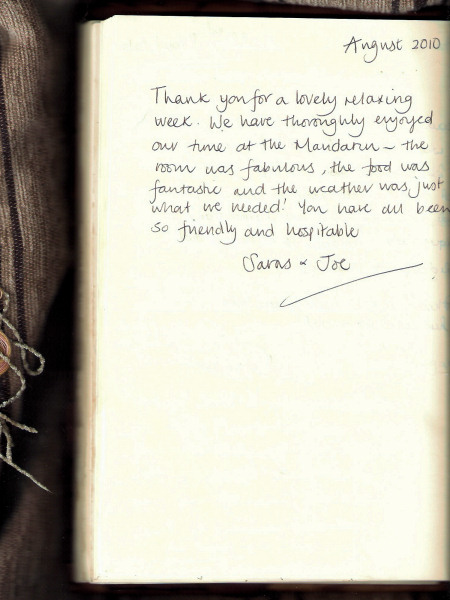 August 2010
Thank you for a lovely relaxing
week. We have thoroughly enjoyed
our time at the Mandarin – the
room was fabulous, the food was
fantastic and the weather was just
what we needed! You have all been
so friendly and hospitable
Saras & Joe